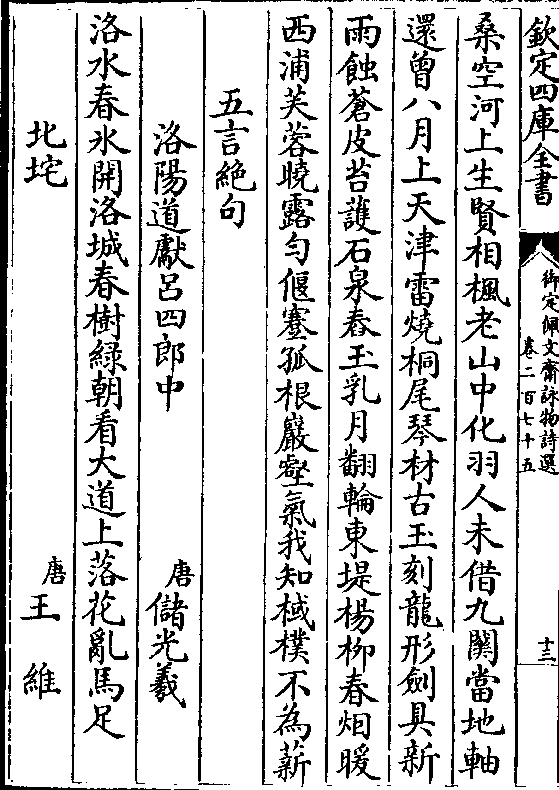 欽定四庫全書
御定佩文齋詠物詩選
卷二百七十五
十三
桑空河上生賢相楓老山中化羽人未借九關當地軸
還曾八月上天津雷燒桐尾琴材古玉刻龍形劍具新
雨蝕蒼皮苔護石泉舂玉乳月翻輪東堤楊柳春烟暖
西浦芙蓉曉露勻偃蹇孤根巖壑氣我知棫樸不為薪
五言絶句
洛陽道獻呂四郎中
唐儲光羲
洛水春氷開洛城春樹緑朝看大道上落花亂馬足
北垞
唐王維